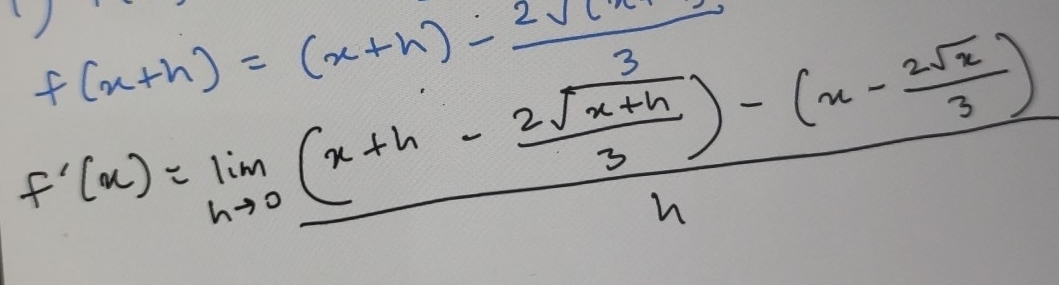 f(x+h) = (x+h) - 2√(x+ / 3
f'(x) = lim h→0 ((x+h - 2√(x+h) / 3) - (x - 2√x / 3)) / h